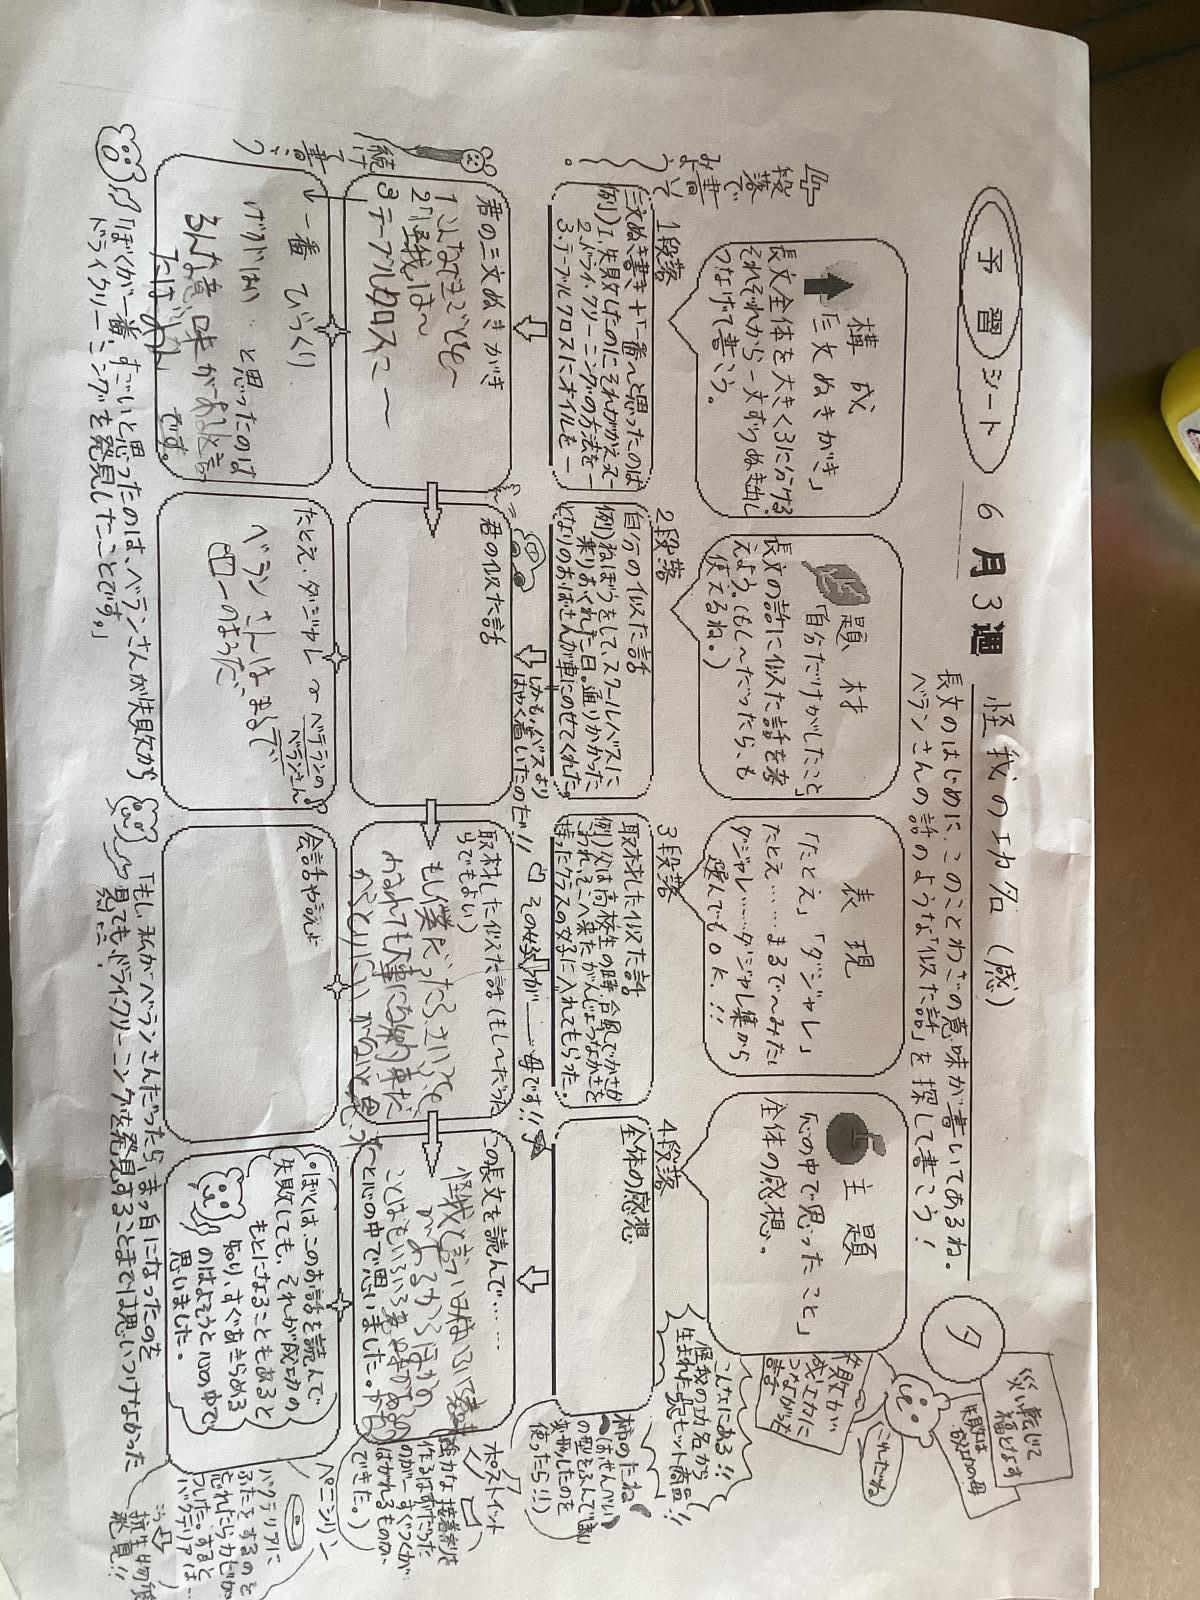 予習シート
6月3週
怪我の功名(感)
長文のはじめに、このことわざの意味が書いてあるね。
ベランさんの話のような「似た話」を探して書こう!
タ
災い転じて
福となす
失敗は
成功の母
これだね
構成
「三文ぬきがき」
長文全体を大きく3つに分ける
それぞれから一文ずつぬき出し
つなげて書こう。
題材
「自分だけがしたこと」
長文の話に似た話を考
えよう。(もし〜だったら、も
使えるね。)
表現
「たとえ」「ダジャレ」
たとえ……まるで〜みたい
ダジャレ……ダジャレ集から
選んでもOK!!
主題
「心の中で思ったこと」
全体の感想。
失敗が
成功に
つながった
話
各段落で
書いて
みよう。
1段落
三文ぬき書き+「一番〜と思ったのは
例)1.失敗したのにそれがかえって〜
2.ドライクリーニングの方法を〜
3.テーブルクロスにオイルを〜
2段落
自分の似た話
例)ねぼうをして、スクールバスに
乗りおくれた日。通りかかった
となりのおばさんが車にのせてくれた。
しかも、バスより
はやく着いたのだ!!
3段落
取材した似た話
例)父は高校生の時台風でかさが
こわれて、そこへ来たがんじょうなかさを
持ったクラスの女子に入れてもらった。
その女の子が――母です!!
4段落
全体の感想
こんなにある!!
怪我の功名が
生まれた大ヒット商品!!
柿のたね
(せんべい
の型をふんでしまい
変形したのを
使ったら!!)
君の三文ぬきがき
3テーブルクロスに〜
君の似た話
取材した似た話(もし〜だった
らでもよい)
この長文を読んで……
と心の中で思いました。
ポストイット
強力な接着剤を
作るはずだった
のが…すぐつくが
はがれるものが
できた。)
続けて
書こう
一番 びっくり
と思ったのは
です。
たとえ・ダジャレ
ベランさんはまるで
のようだ。
会話や言い伝え
◦ぼくは、このお話を読んで
失敗しても、それが成功の
もとになることもあると
知り、すぐあきらめる
のはよそうと心の中で
思いました。
ペニシリン
バクテリアに
ふたをするのを
忘れたらカビが
バクテリアは…
抗生物質
発見!!
「ぼくが一番すごいと思ったのは、ベランさんが失敗から
ドライクリーニングを発見したことです。」
「もし私がベランさんだったら、まっ白になったのを
見ても、ドライクリーニングを発見することまでは思いつけなかった